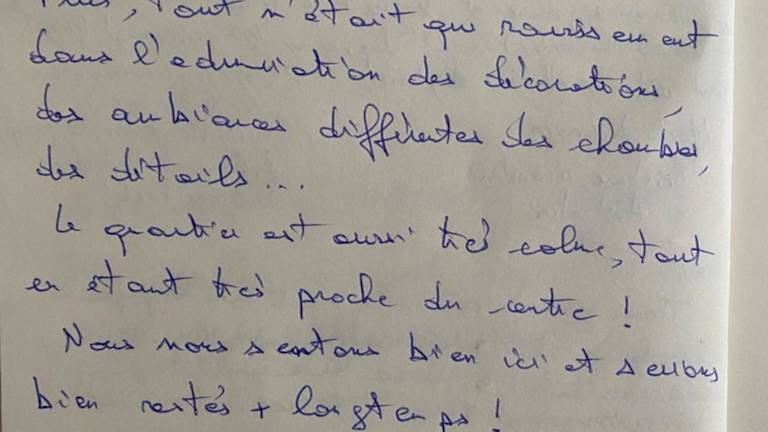 Puis, tout n'était que ravissement
dans l'admiration des décorations,
des ambiances différentes des chambres,
des détails...
Le quartier est aussi très calme, tout
en étant très proche du centre !
Nous nous sentons bien ici et serions
bien restés + longtemps !